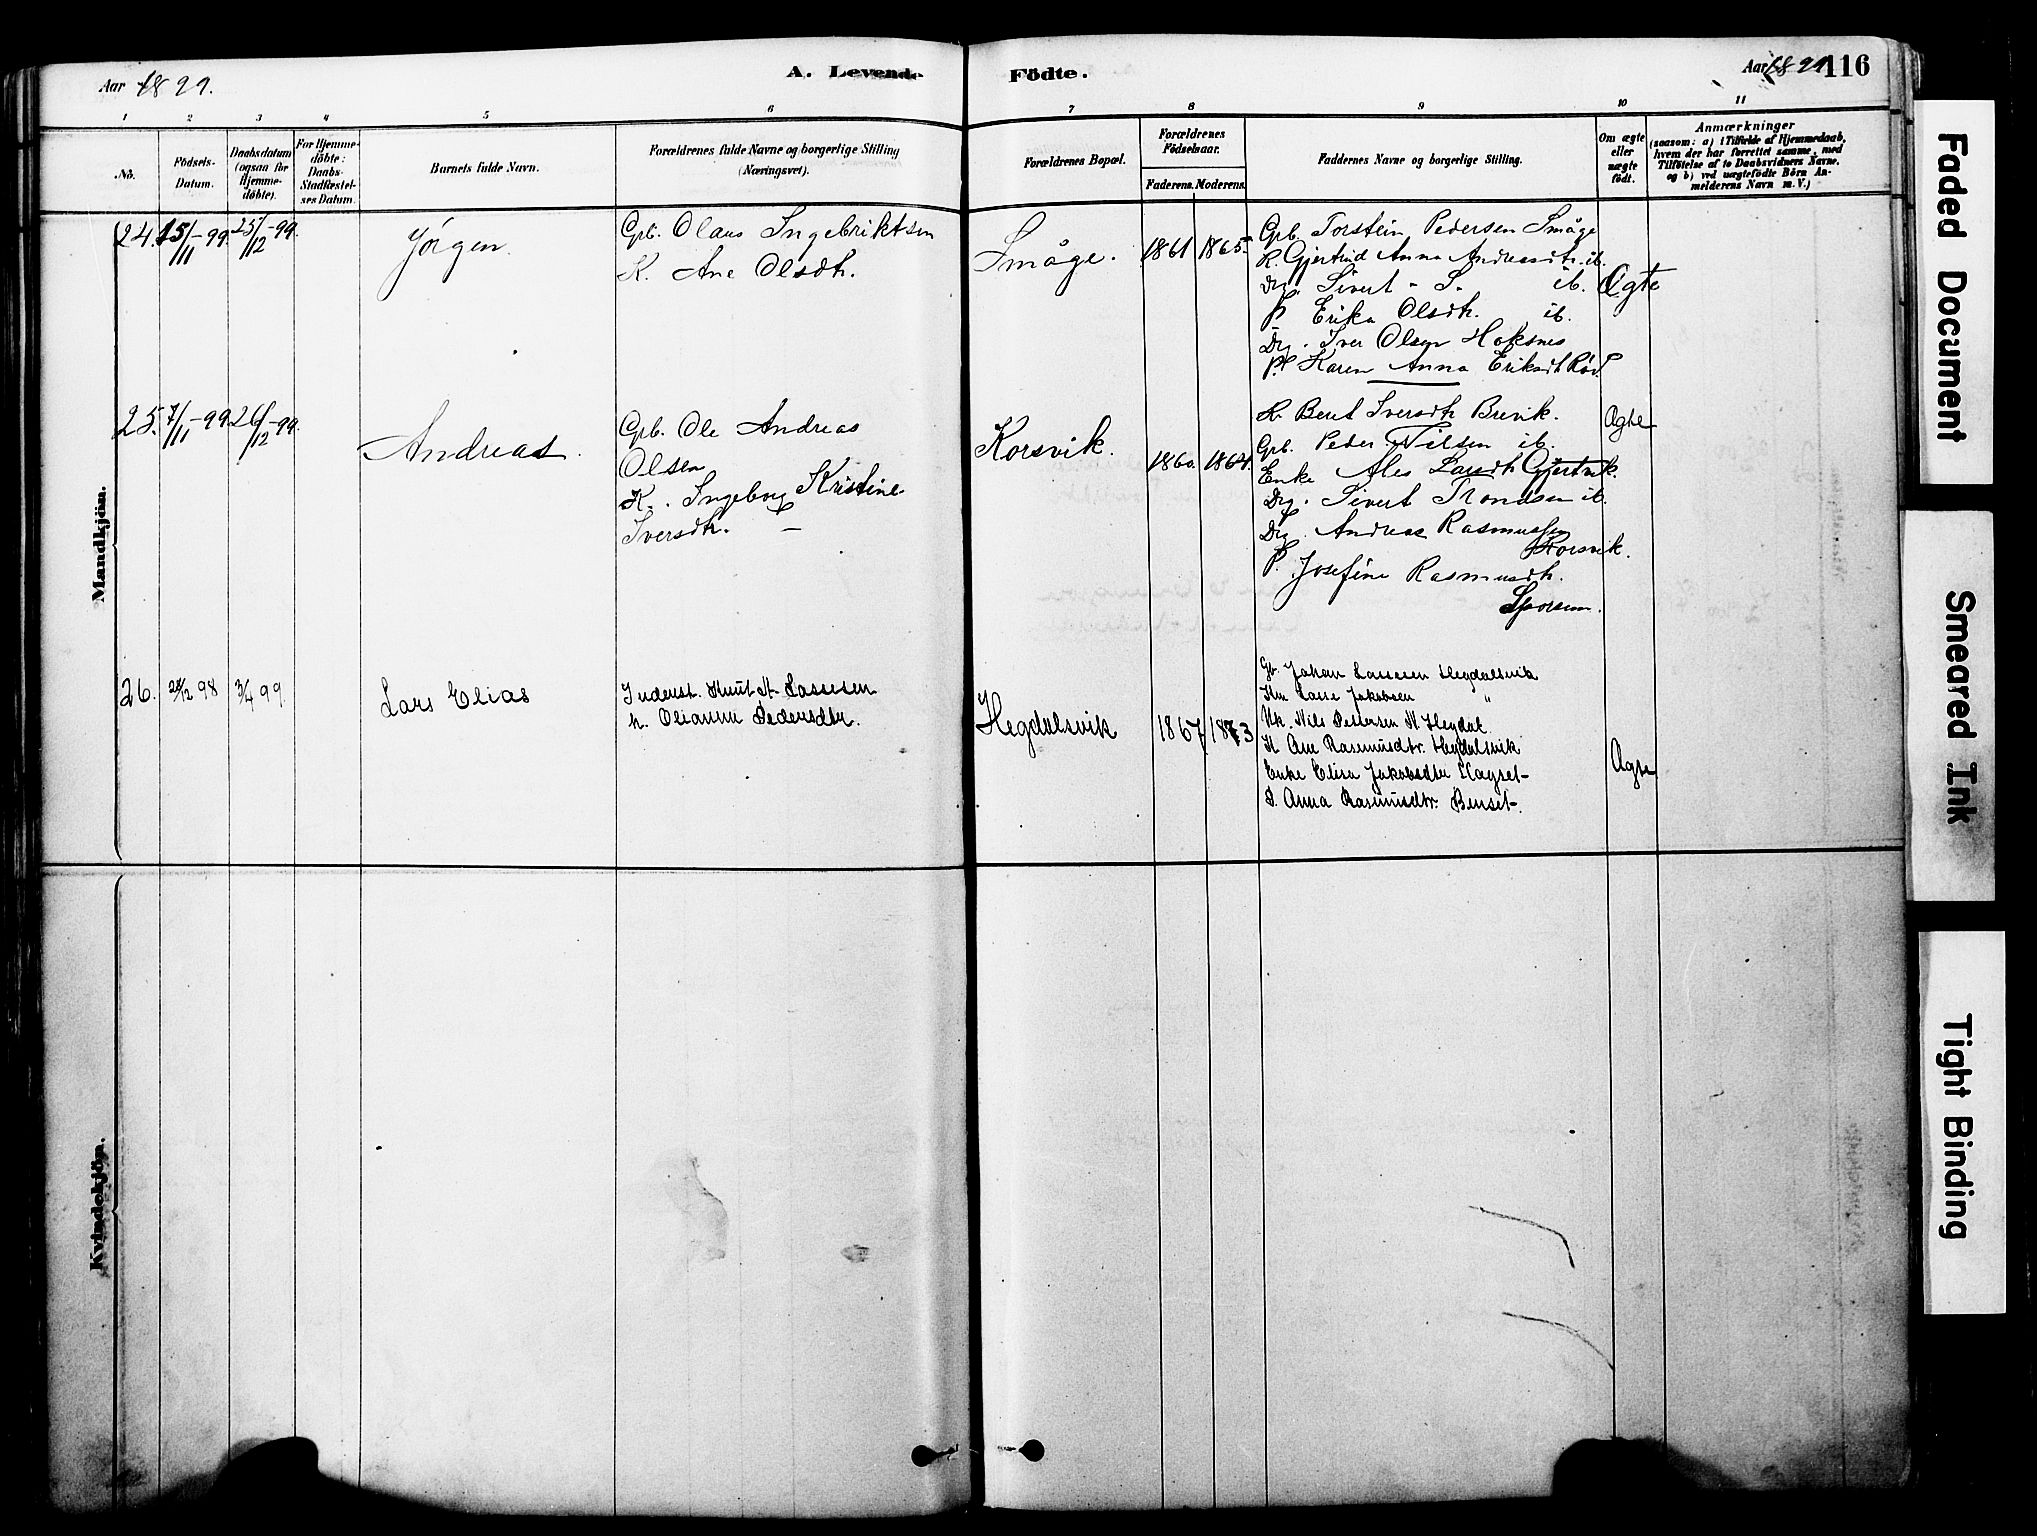 Aar 1899.
A. Levende Födte.
Aar 1899 116
1 2 3 4 5 6 7 8 9 10 11
No.
Födsels-Datum.
Daabsdatum (ogsaa for Hjemme-döbte).
For Hjemme-döbte: Daabs-Stadfæstel-ses Datum.
Barnets fulde Navn.
Forældrenes fulde Navne og borgerlige Stilling
(Næringsvei).
Forældrenes Bopæl.
Forældrenes Födselsaar.
Faderens. Moderens.
Faddernes Navne og borgerlige Stilling.
Om ægte eller uægte födt.
Anmærkninger
(saasom: a) i Tilfælde af Hjemmedaab,
hvem der har forrettet samme, med
Tilföielse af to Daabsvidners Navne,
og b) ved uægtefödte Börn An-
melderens Navn m. V.)
Mandkjön.
24. 15/11-99. 25/12-99.
Jörgen.
Gpb. Olaus Ingebriktsen
K. Ane Olsdtr.
Småge.
1861 1865
Gpb. Torstein Pedersen Småge
K. Gjertrud Anna Andreasdtr. ib.
Drg. Sivert - S- ib.
P. Erika Olsdtr. ib.
Drg. Iver Olsen Hoksnes
P. Karen Anna Eriksdt Röd.
Ægte
25. 7/11-99. 26/12-99.
Andreas.
Gpb. Ole Andreas
Olsen
K. Ingeborg Kristine
Iversdtr.
Korsvik.
1860. 1864.
K. Berit Iversdtr Brevik.
Gpb. Peder Nilsen ib.
Enke Ales Larsdtr Gjertvik.
Drg. Sivert Trondsen ib.
Drg. Andreas Rasmussen
Korsvik.
P. Josefine Rasmusdtr.
Ægte
26. 98 3/4 99.
Lars Elias
Inderst. Knut A. Lassesen
h. Olianna Pedersdtr.
Hegdalsvik
1867 1873
Gb. Johan Lassesen Hegdalsvik
Lasse Jakobsen "
Uk. Nils Pettersen N. Hegdal
K Ane Rasmusdtr. Hegdalsvik
Enke Elisa Jakobsdtr Hagset
P. Anna Rasmusdtr. Benset
Ægte
Kvindekjön.
Faded Document
Smeared Ink
Tight Binding